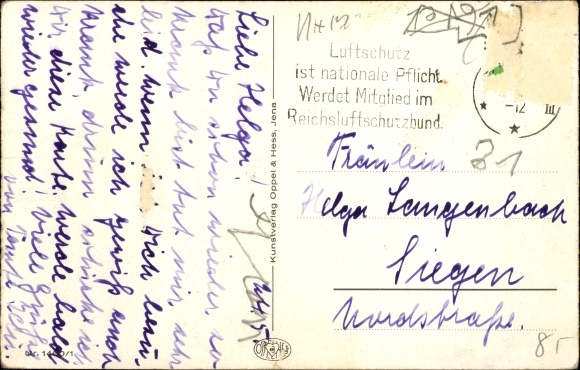 Liebe Helga!
Daß Du schon wieder so
krank bist tut mir sehr
leid. wenn Dich besu-
che werde ich gewiß auch
krank, drum schicke ich
Dir diese Karte. werde bald
wieder gesund! Viele Grüße
von Tante
Kunstverlag Oppel & Hess, Jena
Luftschutz
ist nationale Pflicht.
Werdet Mitglied im
Reichsluftschutzbund.
-12 III
Fräulein
31
Helga Langenbach
Siegen
Nordstraße.
85